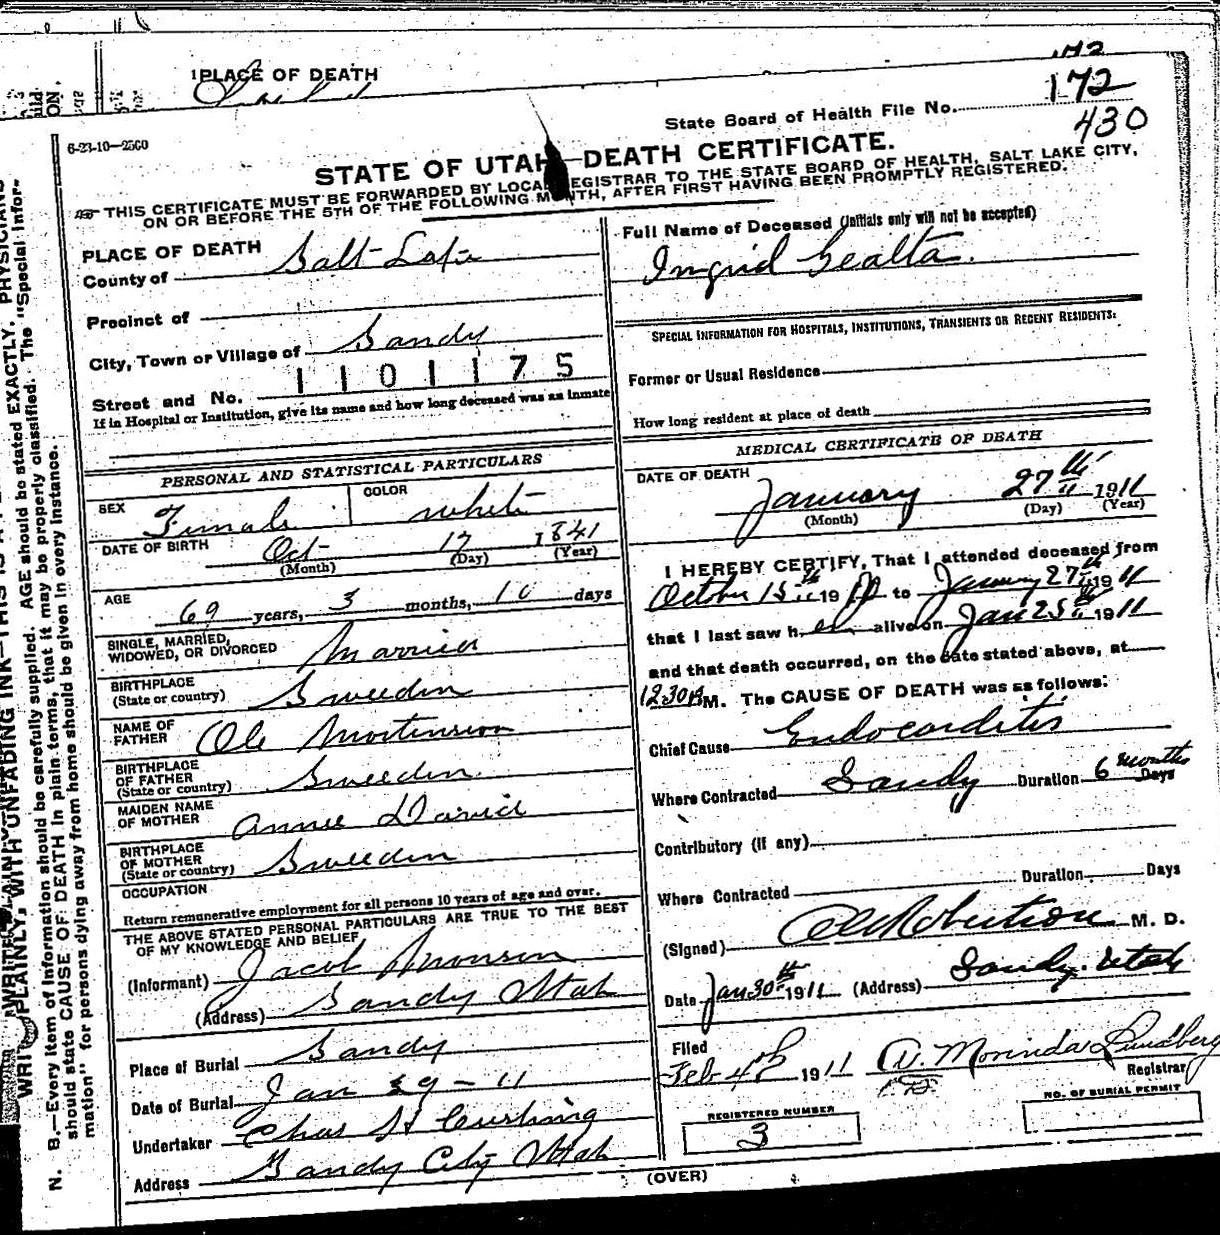 172
1PLACE OF DEATH
State Board of Health File No. 172
430
6-23-10—2500
STATE OF UTAH—DEATH CERTIFICATE.
THIS CERTIFICATE MUST BE FORWARDED BY LOCAL REGISTRAR TO THE STATE BOARD OF HEALTH, SALT LAKE CITY,
ON OR BEFORE THE 5TH OF THE FOLLOWING MONTH, AFTER FIRST HAVING BEEN PROMPTLY REGISTERED.
PLACE OF DEATH
County of Salt Lake
Precinct of
City, Town or Village of Sandy
1101175
Street and No.
If in Hospital or Institution, give its name and how long deceased was an inmate
PERSONAL AND STATISTICAL PARTICULARS
SEX Female
COLOR white
DATE OF BIRTH Oct 17 1841
(Month) (Day) (Year)
AGE 69 years, 3 months, 10 days
SINGLE, MARRIED,
WIDOWED, OR DIVORCED Married
BIRTHPLACE
(State or country) Sweeden
NAME OF
FATHER Ole Mortenson
BIRTHPLACE
OF FATHER
(State or country) Sweeden
MAIDEN NAME
OF MOTHER Annie David
BIRTHPLACE
OF MOTHER
(State or country) Sweeden
OCCUPATION
Return remunerative employment for all persons 10 years of age and over.
THE ABOVE STATED PERSONAL PARTICULARS ARE TRUE TO THE BEST
OF MY KNOWLEDGE AND BELIEF
(Informant) Jacob Monson
(Address) Sandy Utah
Place of Burial Sandy
Date of Burial Jan 29-11
Undertaker Chas H Cushing
Address Sandy City Utah
Full Name of Deceased (Initials only will not be accepted)
Ingrid Gealta.
SPECIAL INFORMATION FOR HOSPITALS, INSTITUTIONS, TRANSIENTS OR RECENT RESIDENTS:
Former or Usual Residence
How long resident at place of death
MEDICAL CERTIFICATE OF DEATH
DATE OF DEATH
January 27th 1911
(Month) (Day) (Year)
I HEREBY CERTIFY, That I attended deceased from
October 15th 19 to January 27th 1911
that I last saw her alive on Jan 25th 1911
and that death occurred, on the date stated above, at
12 30 M. The CAUSE OF DEATH was as follows:
Chief Cause Endocarditis
Where Contracted Sandy Duration 6 months Days
Contributory (if any)
Where Contracted Duration Days
(Signed) Robertson M. D.
Date Jan 30th 1911 (Address) Sandy. Utah
Filed
Feb 4th 1911 Morinda Lundberg
Registrar
REGISTERED NUMBER
3
NO. OF BURIAL PERMIT
(OVER)
WRITE PLAINLY, WITH UNFADING INK—THIS IS A
N. B.—Every item of information should be carefully supplied. AGE should be stated EXACTLY. PHYSICIANS
should state CAUSE OF DEATH in plain terms, that it may be properly classified. The "Special Infor-
mation" for persons dying away from home should be given in every instance.